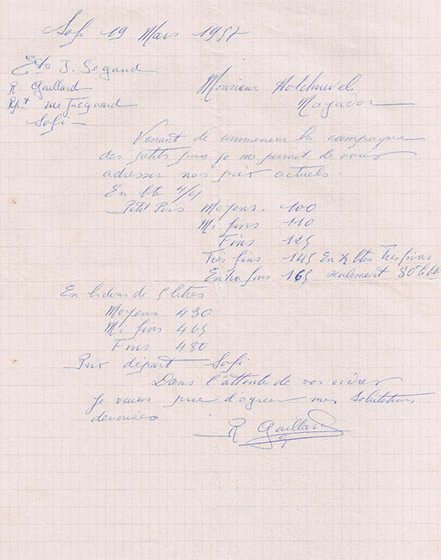 Safi 19 Mars 1957
Ets J. Segaud
R. Gaillard
rue Jacquard
Safi
Monsieur
Mogador
Venant de commencer la campagne
des petits pois je me permet de vous
adresser nos prix actuels.
En bte 4/4
Petit Pois Moyens. 100
Mi fins 110
Fins 125
Très fins 145 En ½ btes Très fins
Extra fins 165 seulement 80
En bidons de 5 litres
Moyens 430
Mi fins 465
Fins 480
Prix départ Safi
Dans l'attente de vos ordres
Je vous prie d'agréer mes salutations
R Gaillard